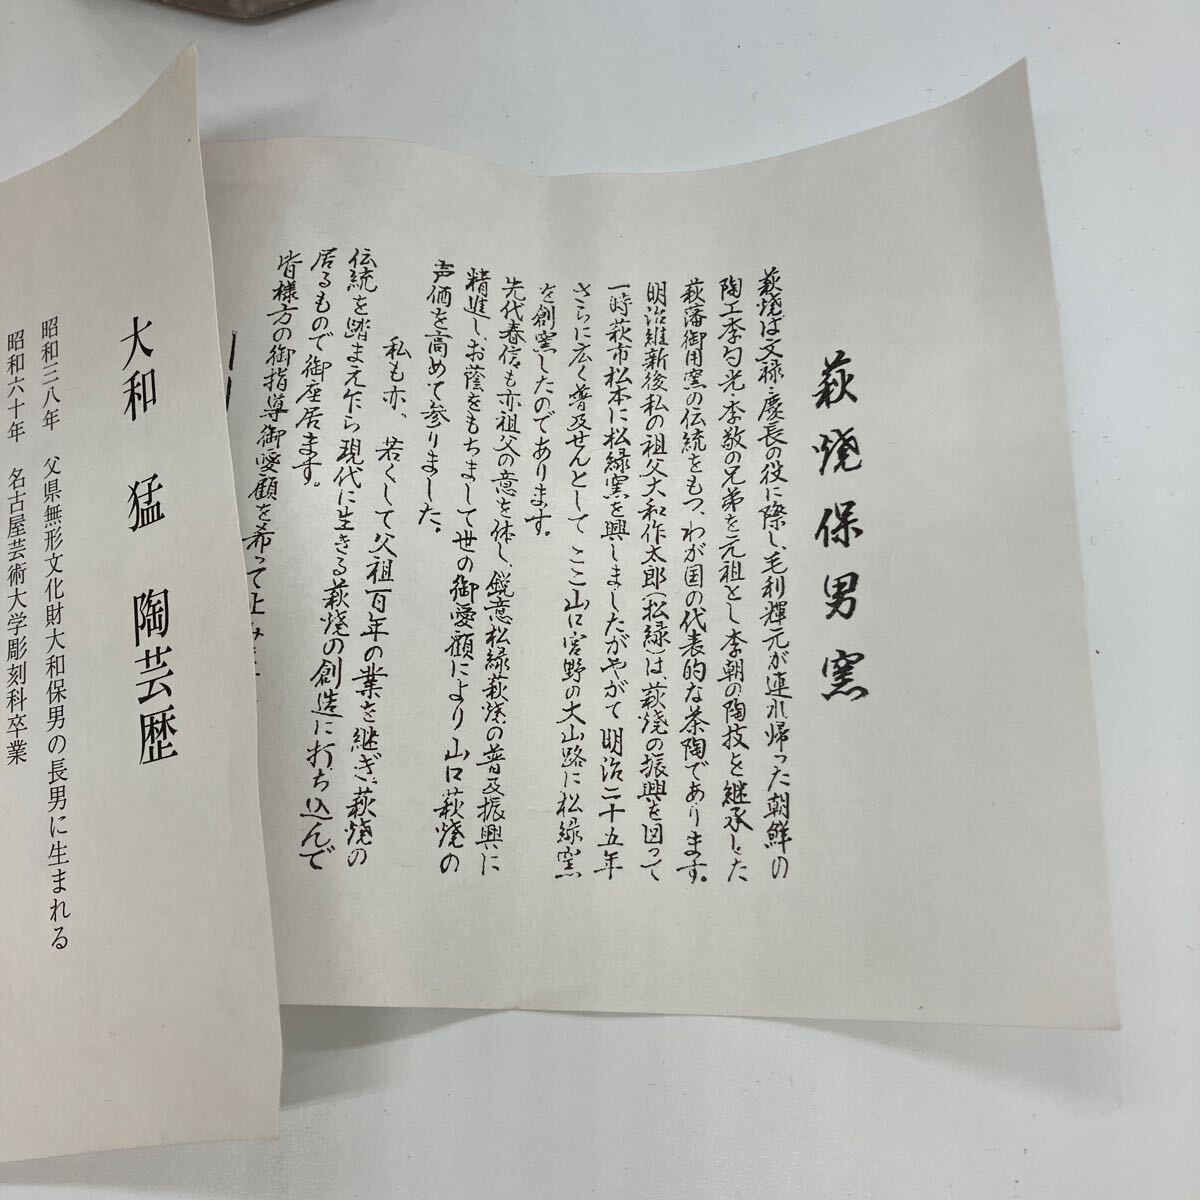 萩焼保男窯
萩焼は文禄・慶長の役に際し、毛利輝元が連れ帰った朝鮮の
陶工李勺光・李敬の兄弟を元祖とし李朝の陶技を継承した
萩藩御用窯の伝統をもつ、わが国の代表的な茶陶であります。
明治維新後私の祖父大和作太郎(松緑)は、萩焼の振興を図って
一時萩市松本に松緑窯を興しましたがやがて明治二十五年
さらに広く普及せんとしてここ山口宮野の大山路に松緑窯
を創窯したのであります。
先代春信も亦祖父の意を体し、鋭意松緑萩焼の普及振興に
精進し、お蔭をもちまして世の御愛顧により山口萩焼の
声価を高めて参りました。
私も亦、若くして父祖百年の業を継ぎ、萩焼の
伝統を踏まえ乍ら現代に生きる萩焼の創造に打ち込んで
居るもので御座居ます。
皆様方の御指導御愛顧を希って止み
大和 猛 陶芸歴
昭和三八年 父県無形文化財大和保男の長男に生まれる
昭和六十年 名古屋芸術大学彫刻科卒業